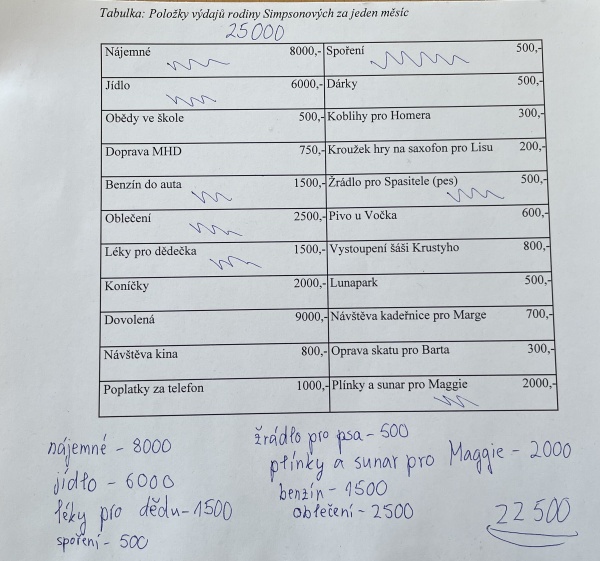 Tabulka: Položky výdajů rodiny Simpsonových za jeden měsíc
25000
Nájemné 8000,- Spoření 500,-
Jídlo 6000,- Dárky 500,-
Obědy ve škole 500,- Koblihy pro Homera 300,-
Doprava MHD 750,- Kroužek hry na saxofon pro Lisu 200,-
Benzín do auta 1500,- Žrádlo pro Spasitele (pes) 500,-
Oblečení 2500,- Pivo u Vočka 600,-
Léky pro dědečka 1500,- Vystoupení šáši Krustyho 800,-
Koníčky 2000,- Lunapark 500,-
Dovolená 9000,- Návštěva kadeřnice pro Marge 700,-
Návštěva kina 800,- Oprava skatu pro Barta 300,-
Poplatky za telefon 1000,- Plínky a sunar pro Maggie 2000,-
nájemné - 8000
jídlo - 6000
léky pro dědu - 1500
spoření - 500
žrádlo pro psa - 500
plínky a sunar pro Maggie - 2000
benzín - 1500
oblečení - 2500
22500